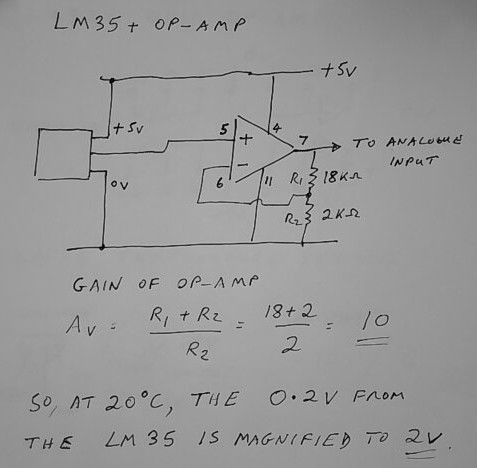 LM35 + OP-AMP
+5V
+5V
5
+
4
7
TO ANALOGUE
INPUT
-
6
11
R1
18KΩ
0V
R2
2KΩ
GAIN OF OP-AMP
Av = R1 + R2 / R2 = 18+2 / 2 = 10
SO, AT 20°C, THE 0.2V FROM
THE LM35 IS MAGNIFIED TO 2V.